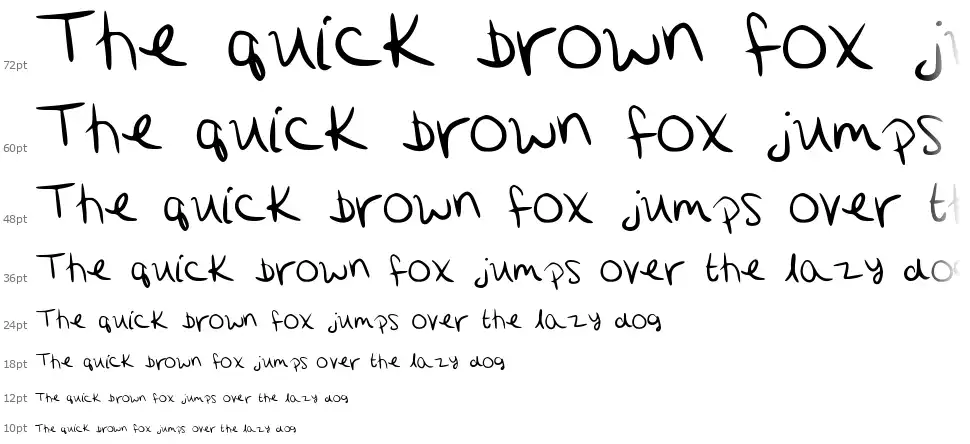 72pt The quick brown fox j
60pt The quick brown fox jumps
48pt The quick brown fox jumps over th
36pt The quick brown fox jumps over the lazy dog
24pt The quick brown fox jumps over the lazy dog
18pt The quick brown fox jumps over the lazy dog
12pt The quick brown fox jumps over the lazy dog
10pt The quick brown fox jumps over the lazy dog